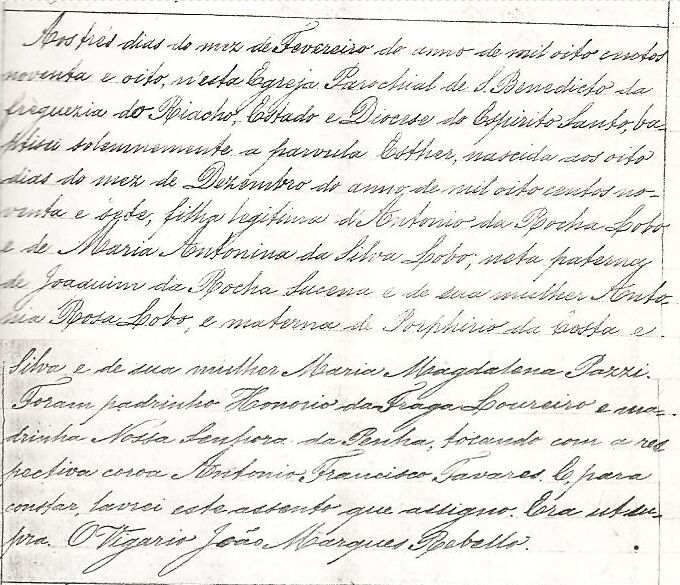 Aos três dias do mez de Fevereiro do anno de mil oito centos
noventa e oito, n'esta Egreja Parochial de S. Benedicto da
freguezia do Riacho, Estado e Diocese do Espirito Santo, ba-
ptisei solemnemente a parvula Esther, nascida aos oito
dias do mez de Dezembro do anno de mil oito centos no-
venta e sete, filha legitima d'Antonio da Rocha Lobo
e de Maria Antonina da Silva Lobo; neta paterna
de Joaquim da Rocha Lucena e de sua mulher Anto-
nia Rosa Lobo, e materna de Porphirio da Costa e
Silva e de sua mulher Maria Magdalena Pazzi.
Foram padrinho Honorio da Fraga Loureiro e ma-
drinha Nossa Senhora da Penha, tocando com a res
pectiva coroa Antonio Francisco Tavares. E, para
constar, lavrei este assento que assigno. Era ut su-
pra. O Vigario João Marques Rebello.